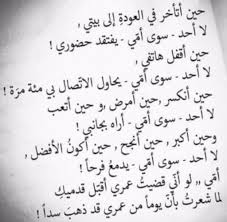 حين أتأخر في العودة إلى بيتي ,
لا أحد - سوى أمّي - يفتقد حضوري !
حين أقفل هاتفي ,
لا أحد - سوى أمّي - يحاول الاتصال بي مئة مرة !
حين أنكسر , حين أمرض , و حين أتعب
لا أحد - سوى أمّي - أراه بجانبي !
وحين أكبر , حين أنجح , حين أكونُ الأفضل ,
لا أحد - سوى أمّي - يدمعُ فرحاً !
أمّي ,, لو أنّي قضيتُ عمري أقبّل قدميكِ
لما شعرتُ بأنّ يوماً من عمري قد ذهبَ سداً !